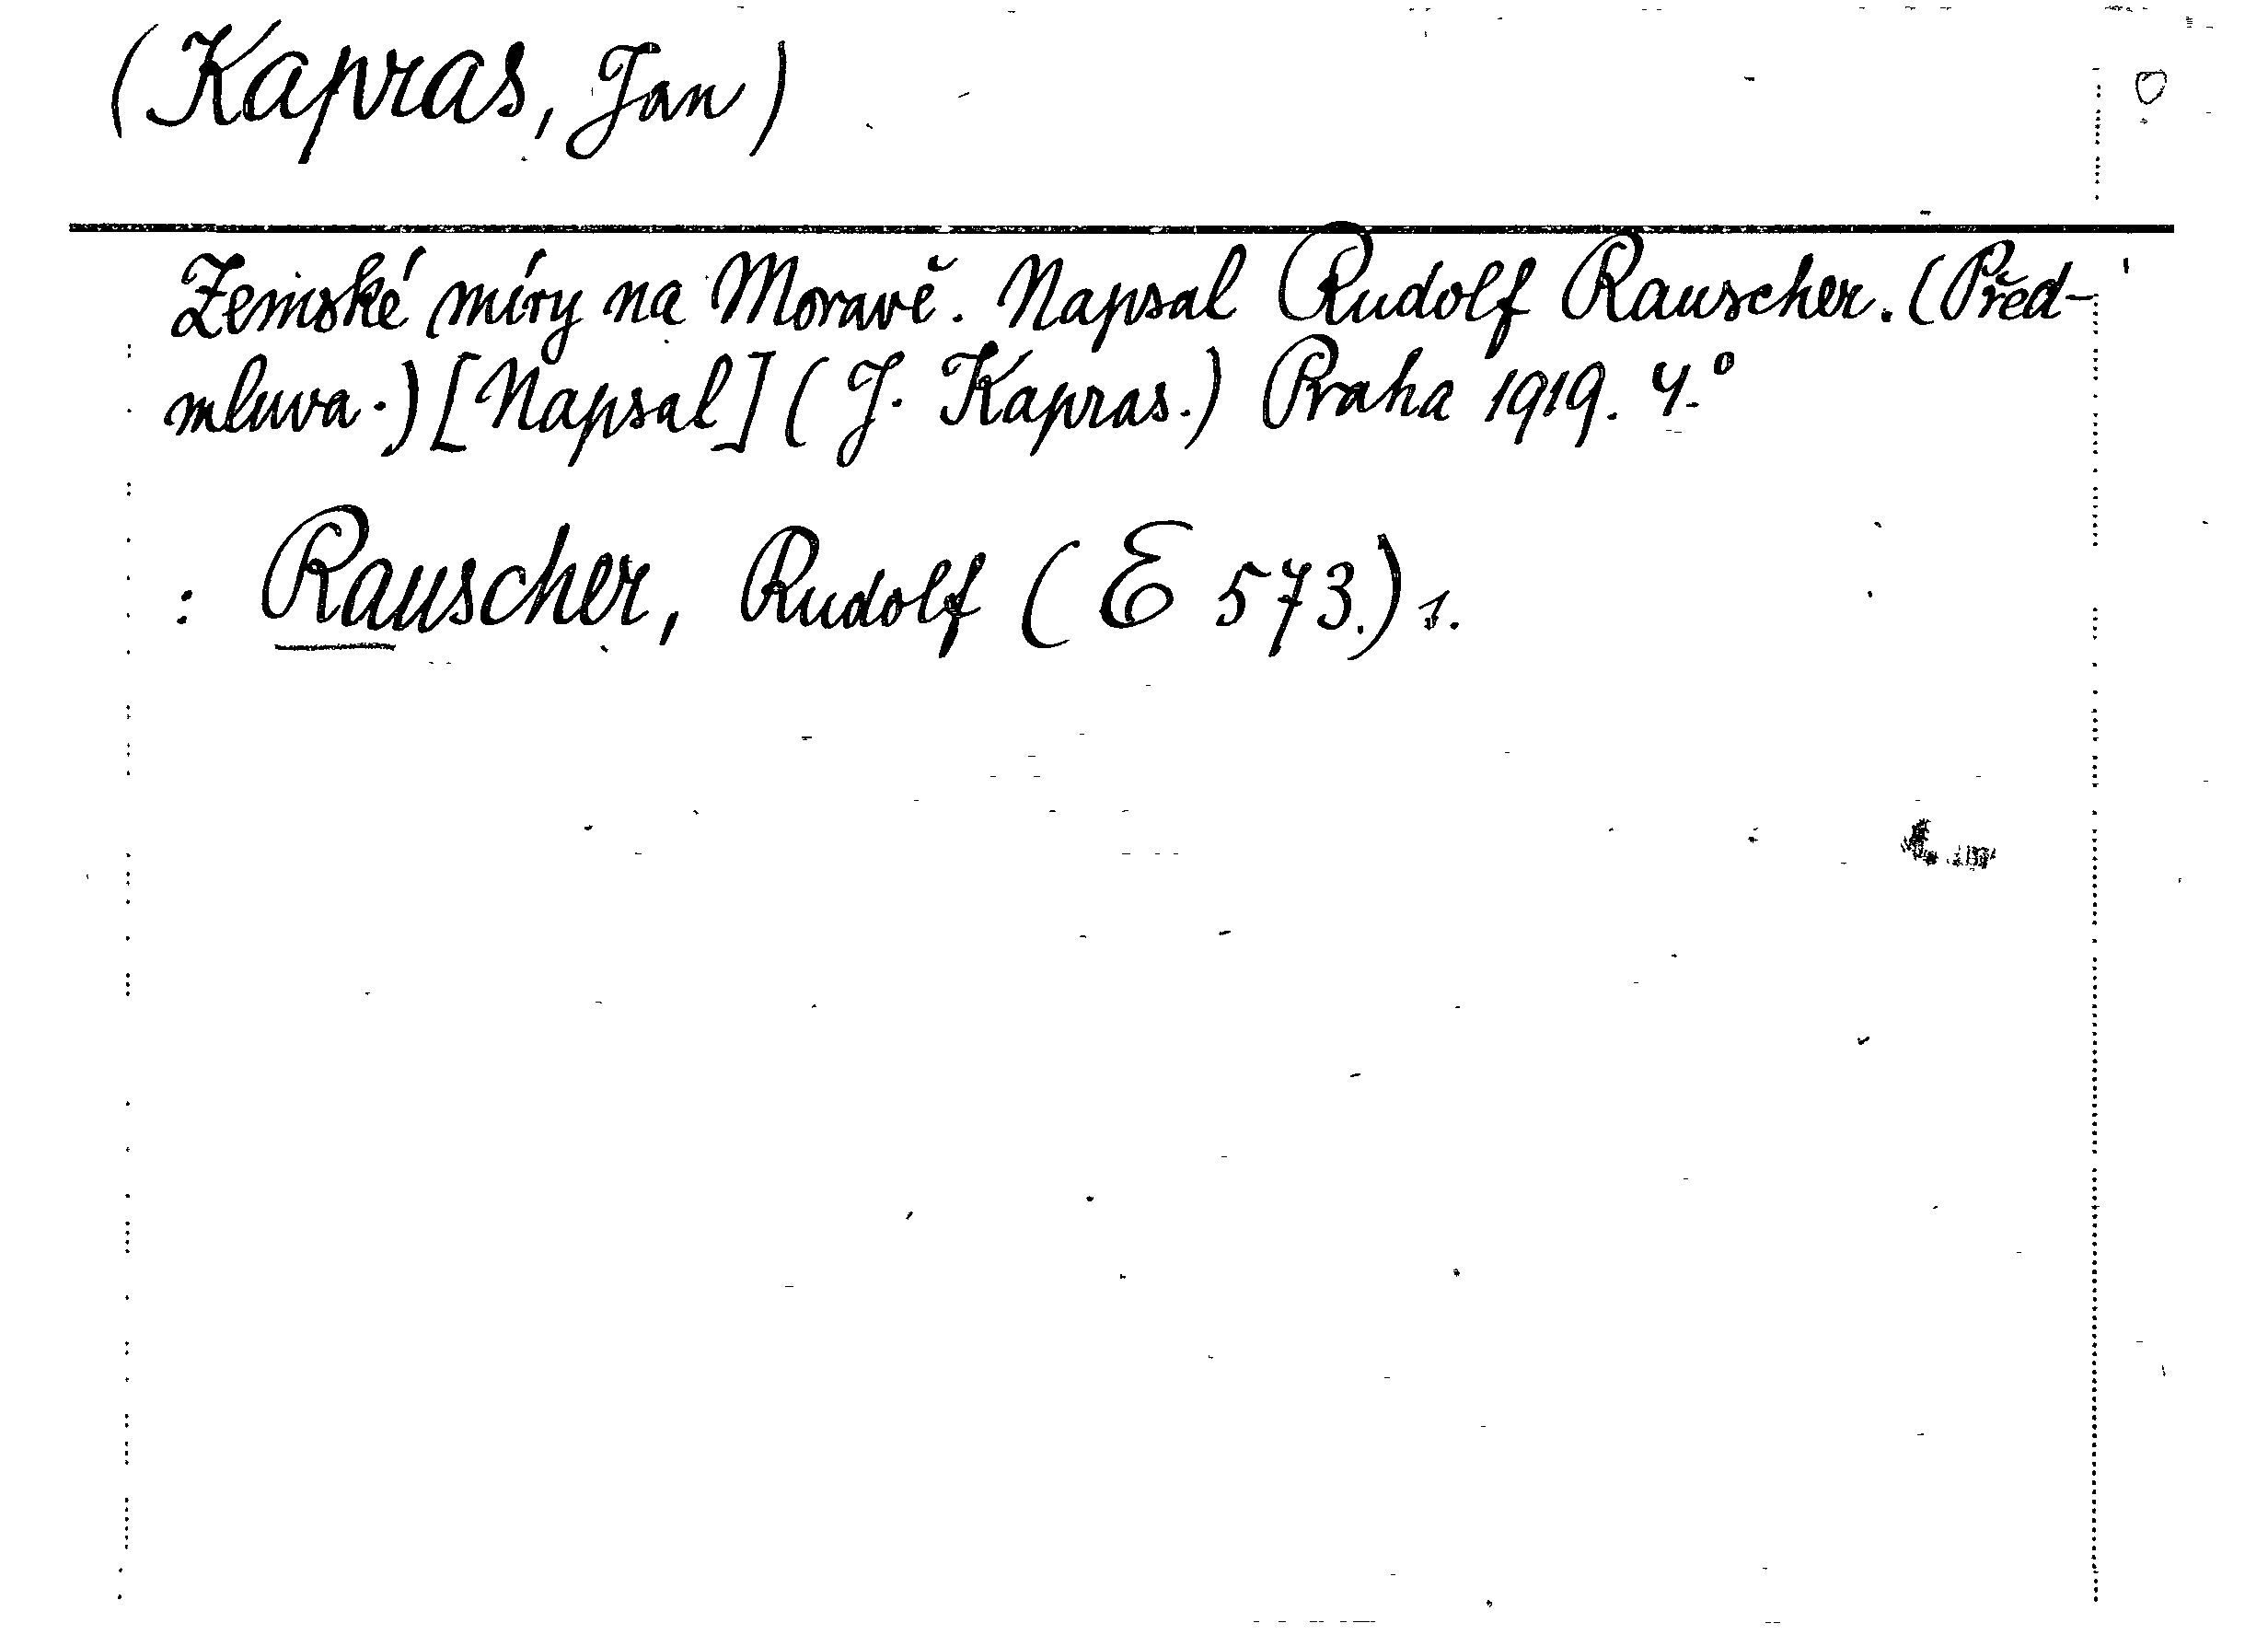 (Kapras, Jan)
Zemské míry na Moravě. Napsal Rudolf Rauscher. (Před-
mluva.) [Napsal] (J. Kapras.) Praha 1919. 4.°
: Rauscher, Rudolf (E 573.) 1.